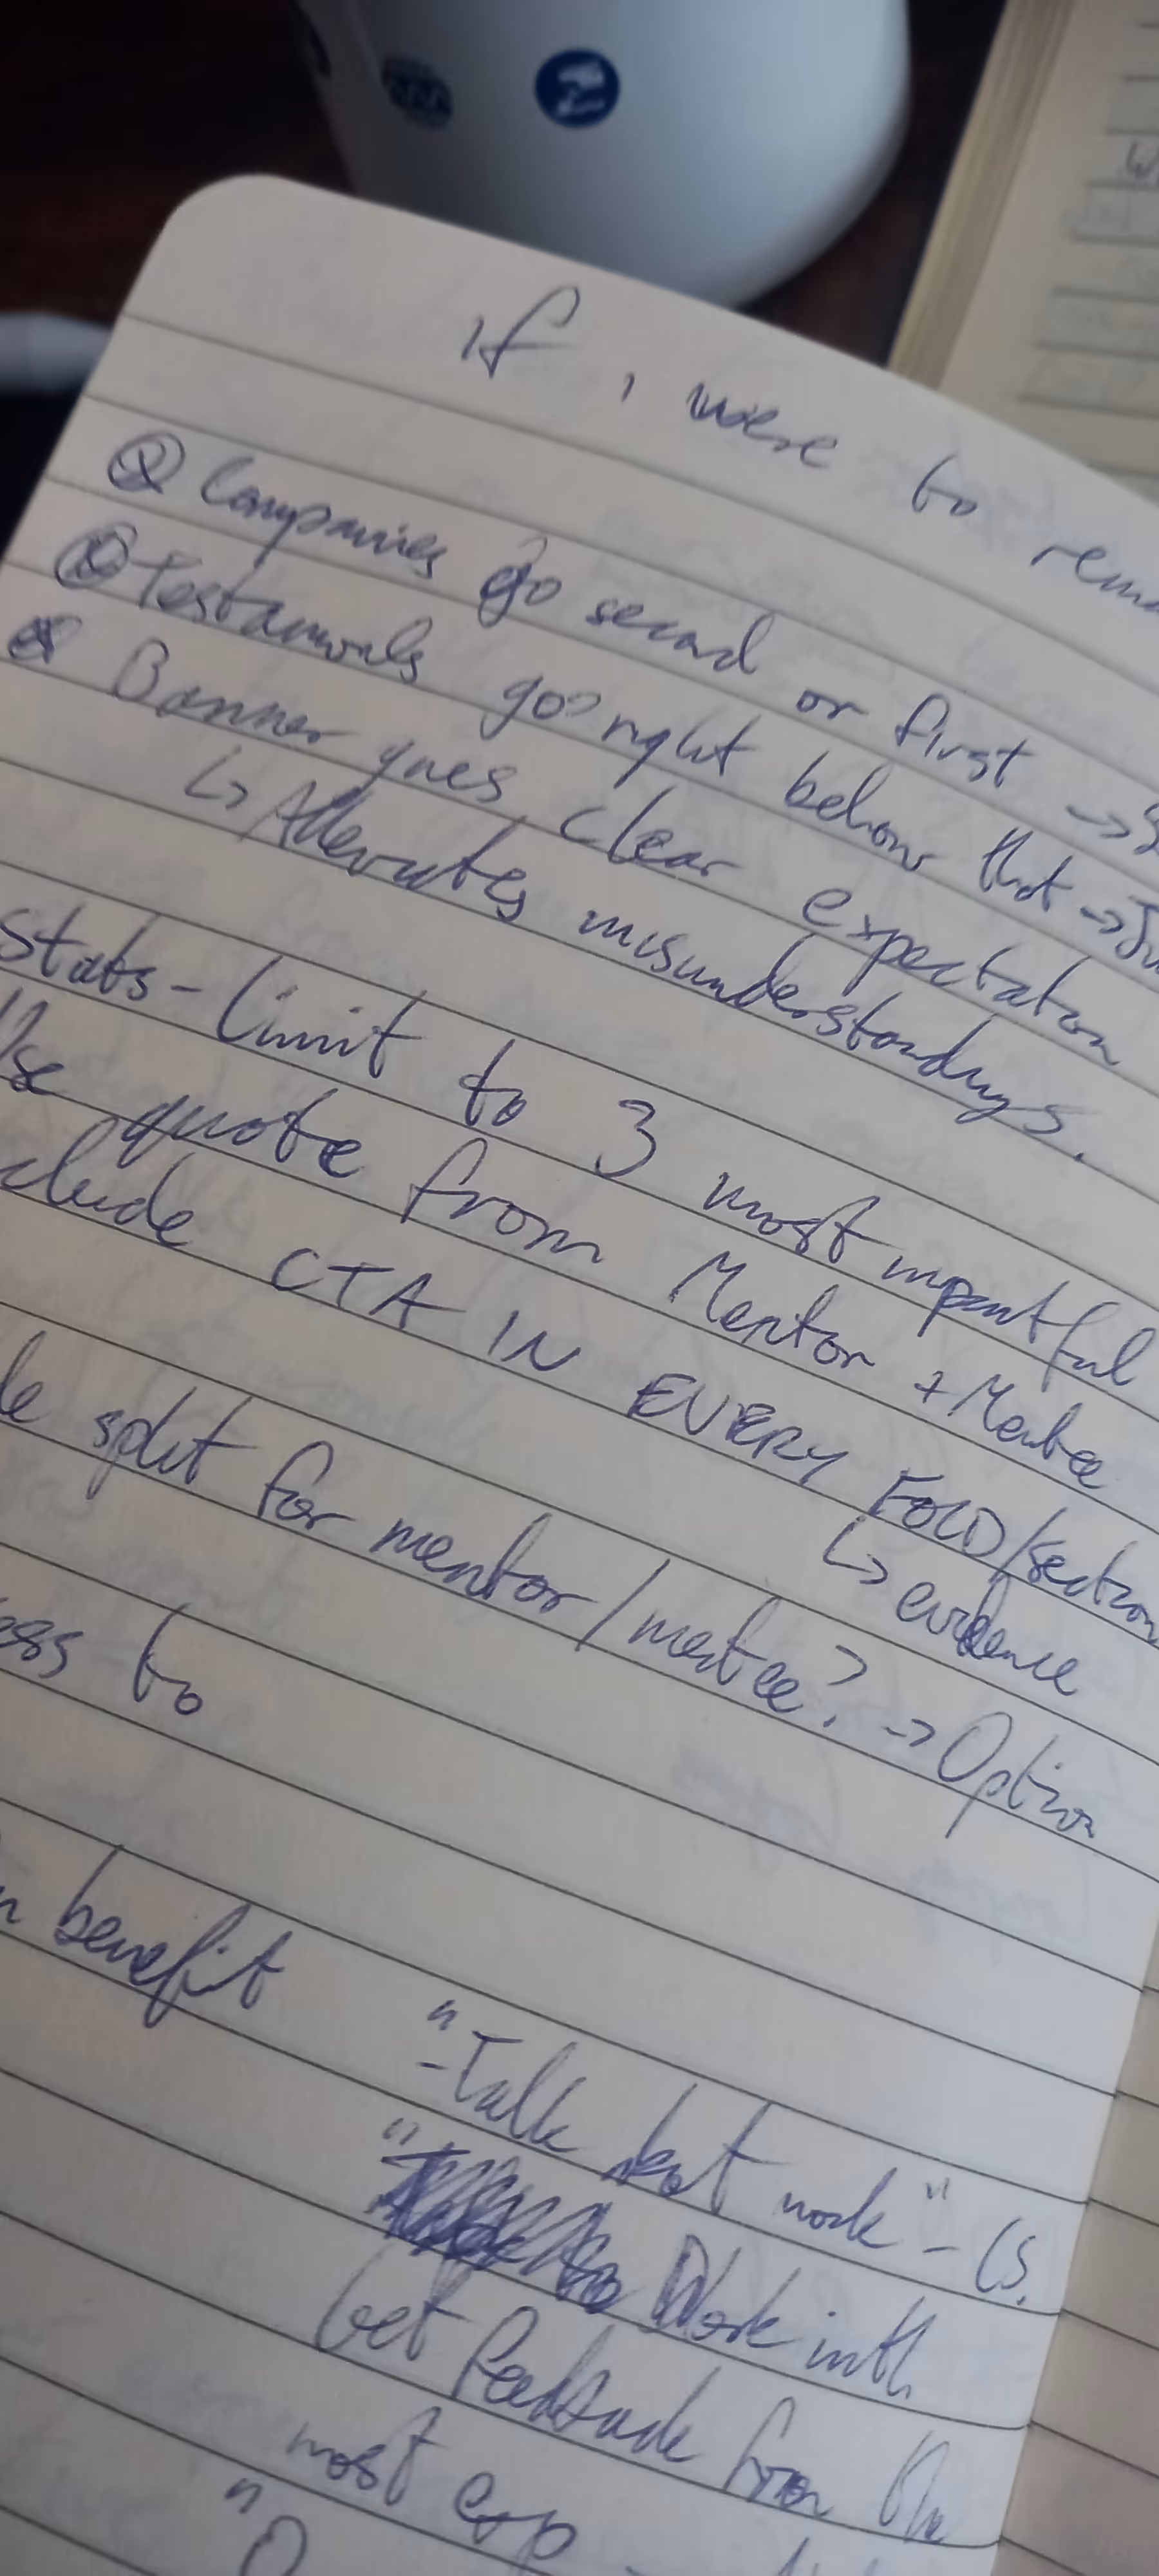 If , were to
Companies go second or first →
Testamonials go right below that →
Banner gives clear expectation
↳ Alleviates misunderstandings.
Stats - Limit to 3 most impactful
Use quote from Mentor + Mentee
clude CTA IN EVERY FOLD/section
↳ evidence
le split for mentor/mentee? → Option
ess to
benefit
"Talk about work" -
" Work
Get feedback from
most exp
"